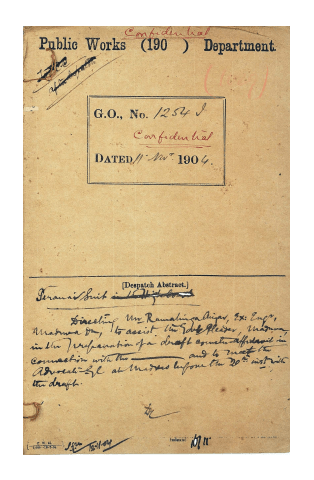 Confidential
Public Works (190 ) Department.
G.O., No. 1254 I
Confidential
DATED 11 Novr 1904.
[Despatch Abstract.]
Suit
Directing Mr Ramalinga Aiyar, Ex: Engr,
Madura Dn, to assist the Govt Pleader, Madura,
in the preparation of a draft counter-affidavit in
connection with the and to meet the
Advocate-Gl at Madras before the 20th inst with
the draft.
Indexed